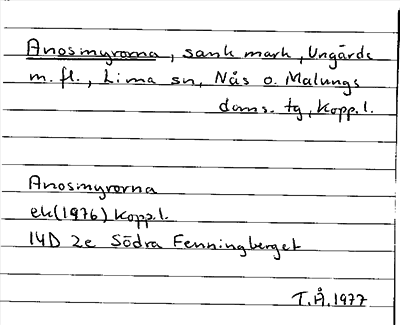 Anosmyrorna, sank mark, Ungärde
m.fl., Lima sn, Nås o. Malungs
doms. tg, Kopp.l.
Anosmyrorna
ek(1976) Kopp.l.
14D 2e Södra Fenningberget
T.Å.1977